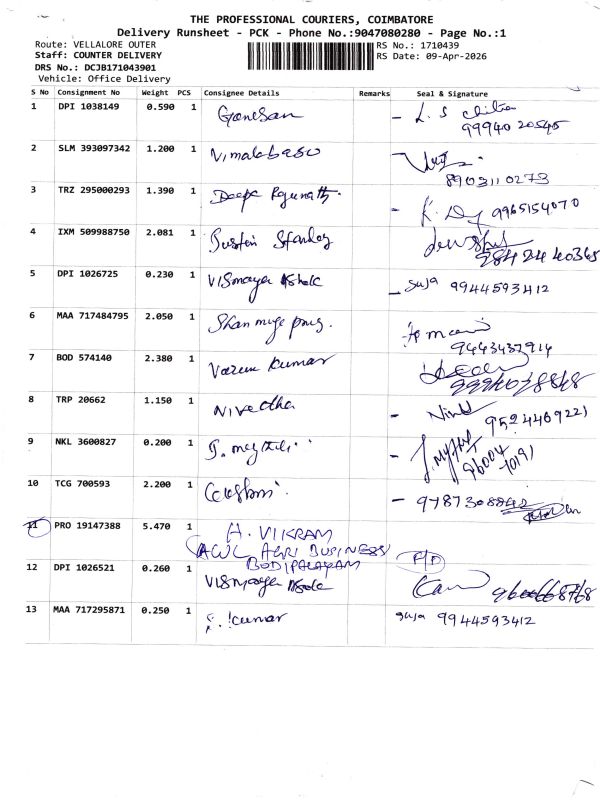 THE PROFESSIONAL COURIERS, COIMBATORE
Delivery Runsheet - PCK - Phone No.:9047080280 - Page No.:1
Route: VELLALORE OUTER RS No.: 1710439
Staff: COUNTER DELIVERY RS Date: 09-Apr-2026
DRS No.: DCJB171043901
Vehicle: Office Delivery
S No Consignment No Weight PCS Consignee Details Remarks Seal & Signature
1 DPI 1038149 0.590 1 Ganesan - L. S
99940 20545
2 SLM 393097342 1.200 1 Vimalababu
8903110273
3 TRZ 295000293 1.390 1 Deepa - K. 9965154070
4 IXM 509988750 2.081 1 Justin Stanley
9842440365
5 DPI 1026725 0.230 1 VISmaya - suja 9944593412
6 MAA 717484795 2.050 1
9443437914
7 BOD 574140 2.380 1 Varun Kumar
8 TRP 20662 1.150 1 Nivedha - 9524469221
9 NKL 3600827 0.200 1 -
96004
70191
10 TCG 700593 2.200 1 - 9787308842
11 PRO 19147388 5.470 1 A. VIKRAM
AWL AGRI BUSINESS
BODIPALAYAM
12 DPI 1026521 0.260 1 VISmaya
13 MAA 717295871 0.250 1 kumar suja 9944593412